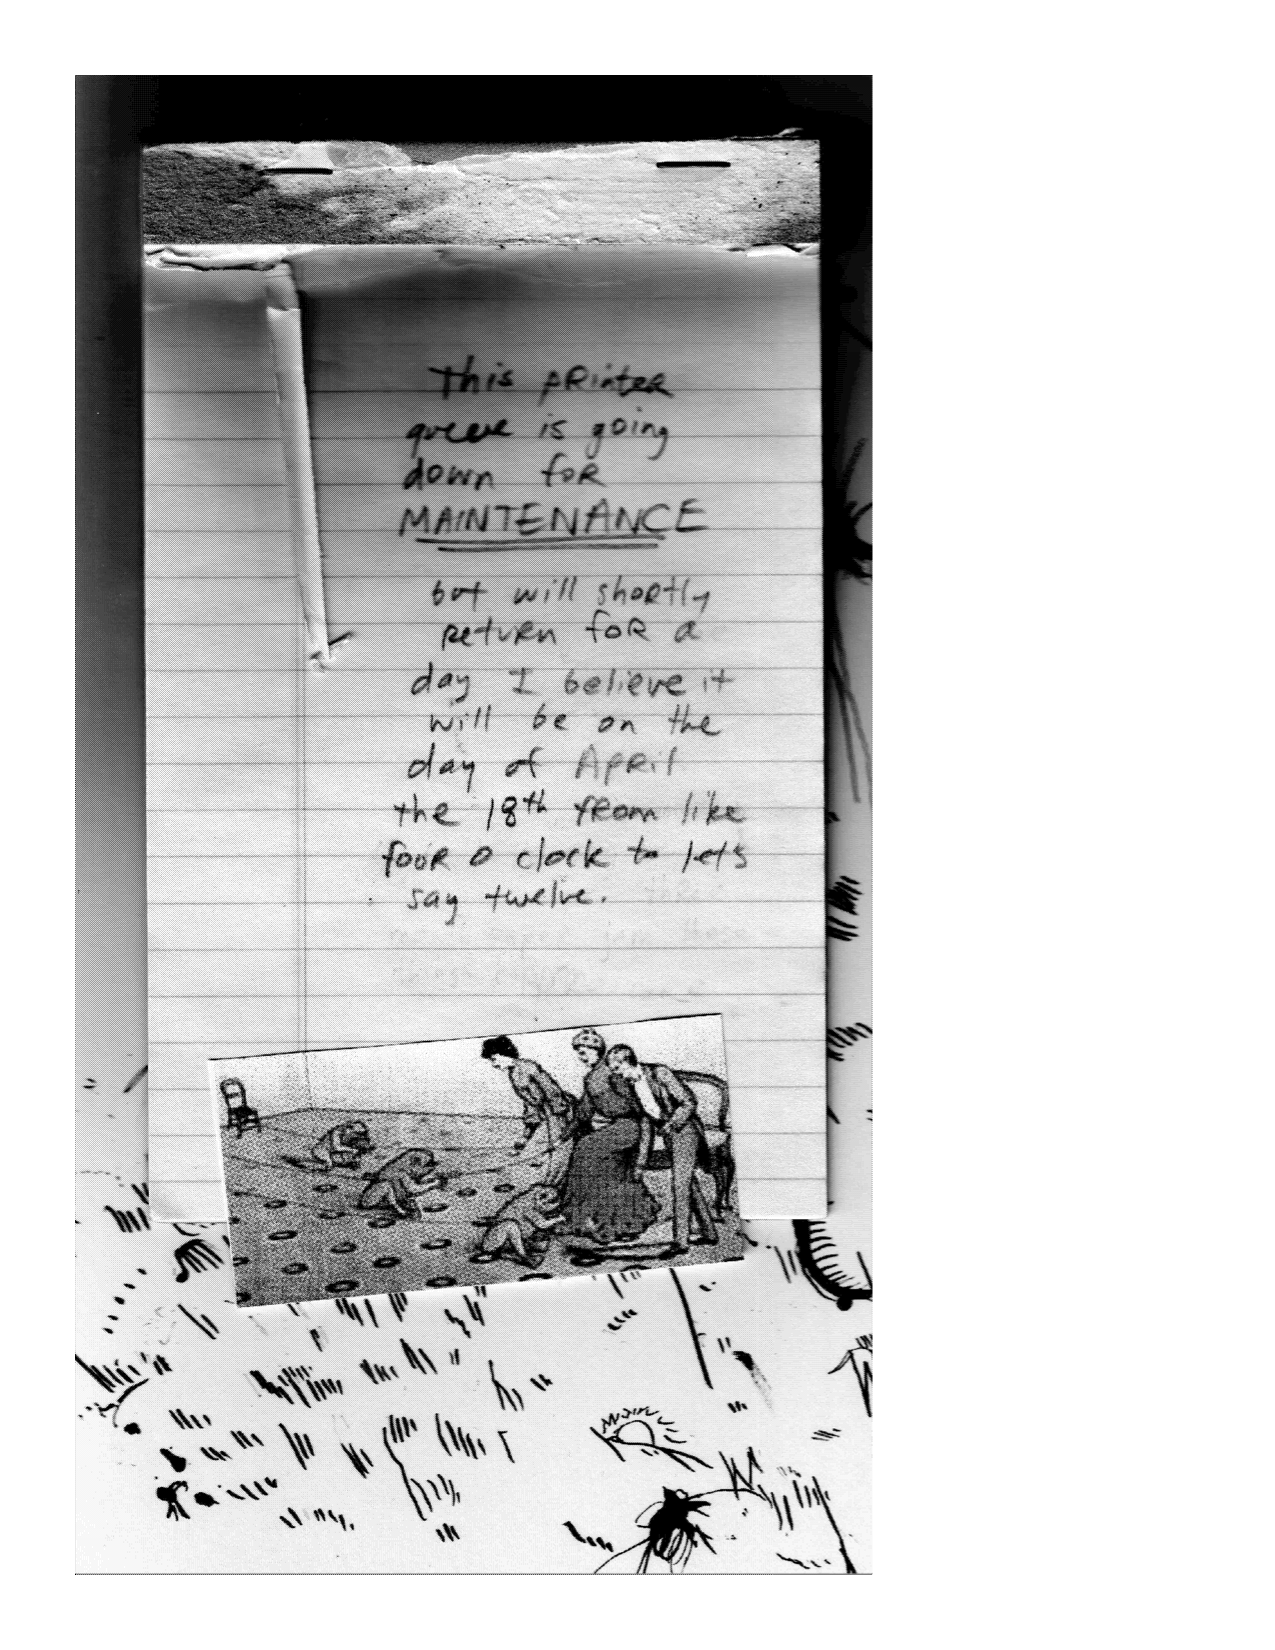 This printer
queue is going
down for
MAINTENANCE
but will shortly
return for a
day I believe it
will be on the
day of April
the 18th from like
four o clock to lets
say twelve.
three
paper jam these